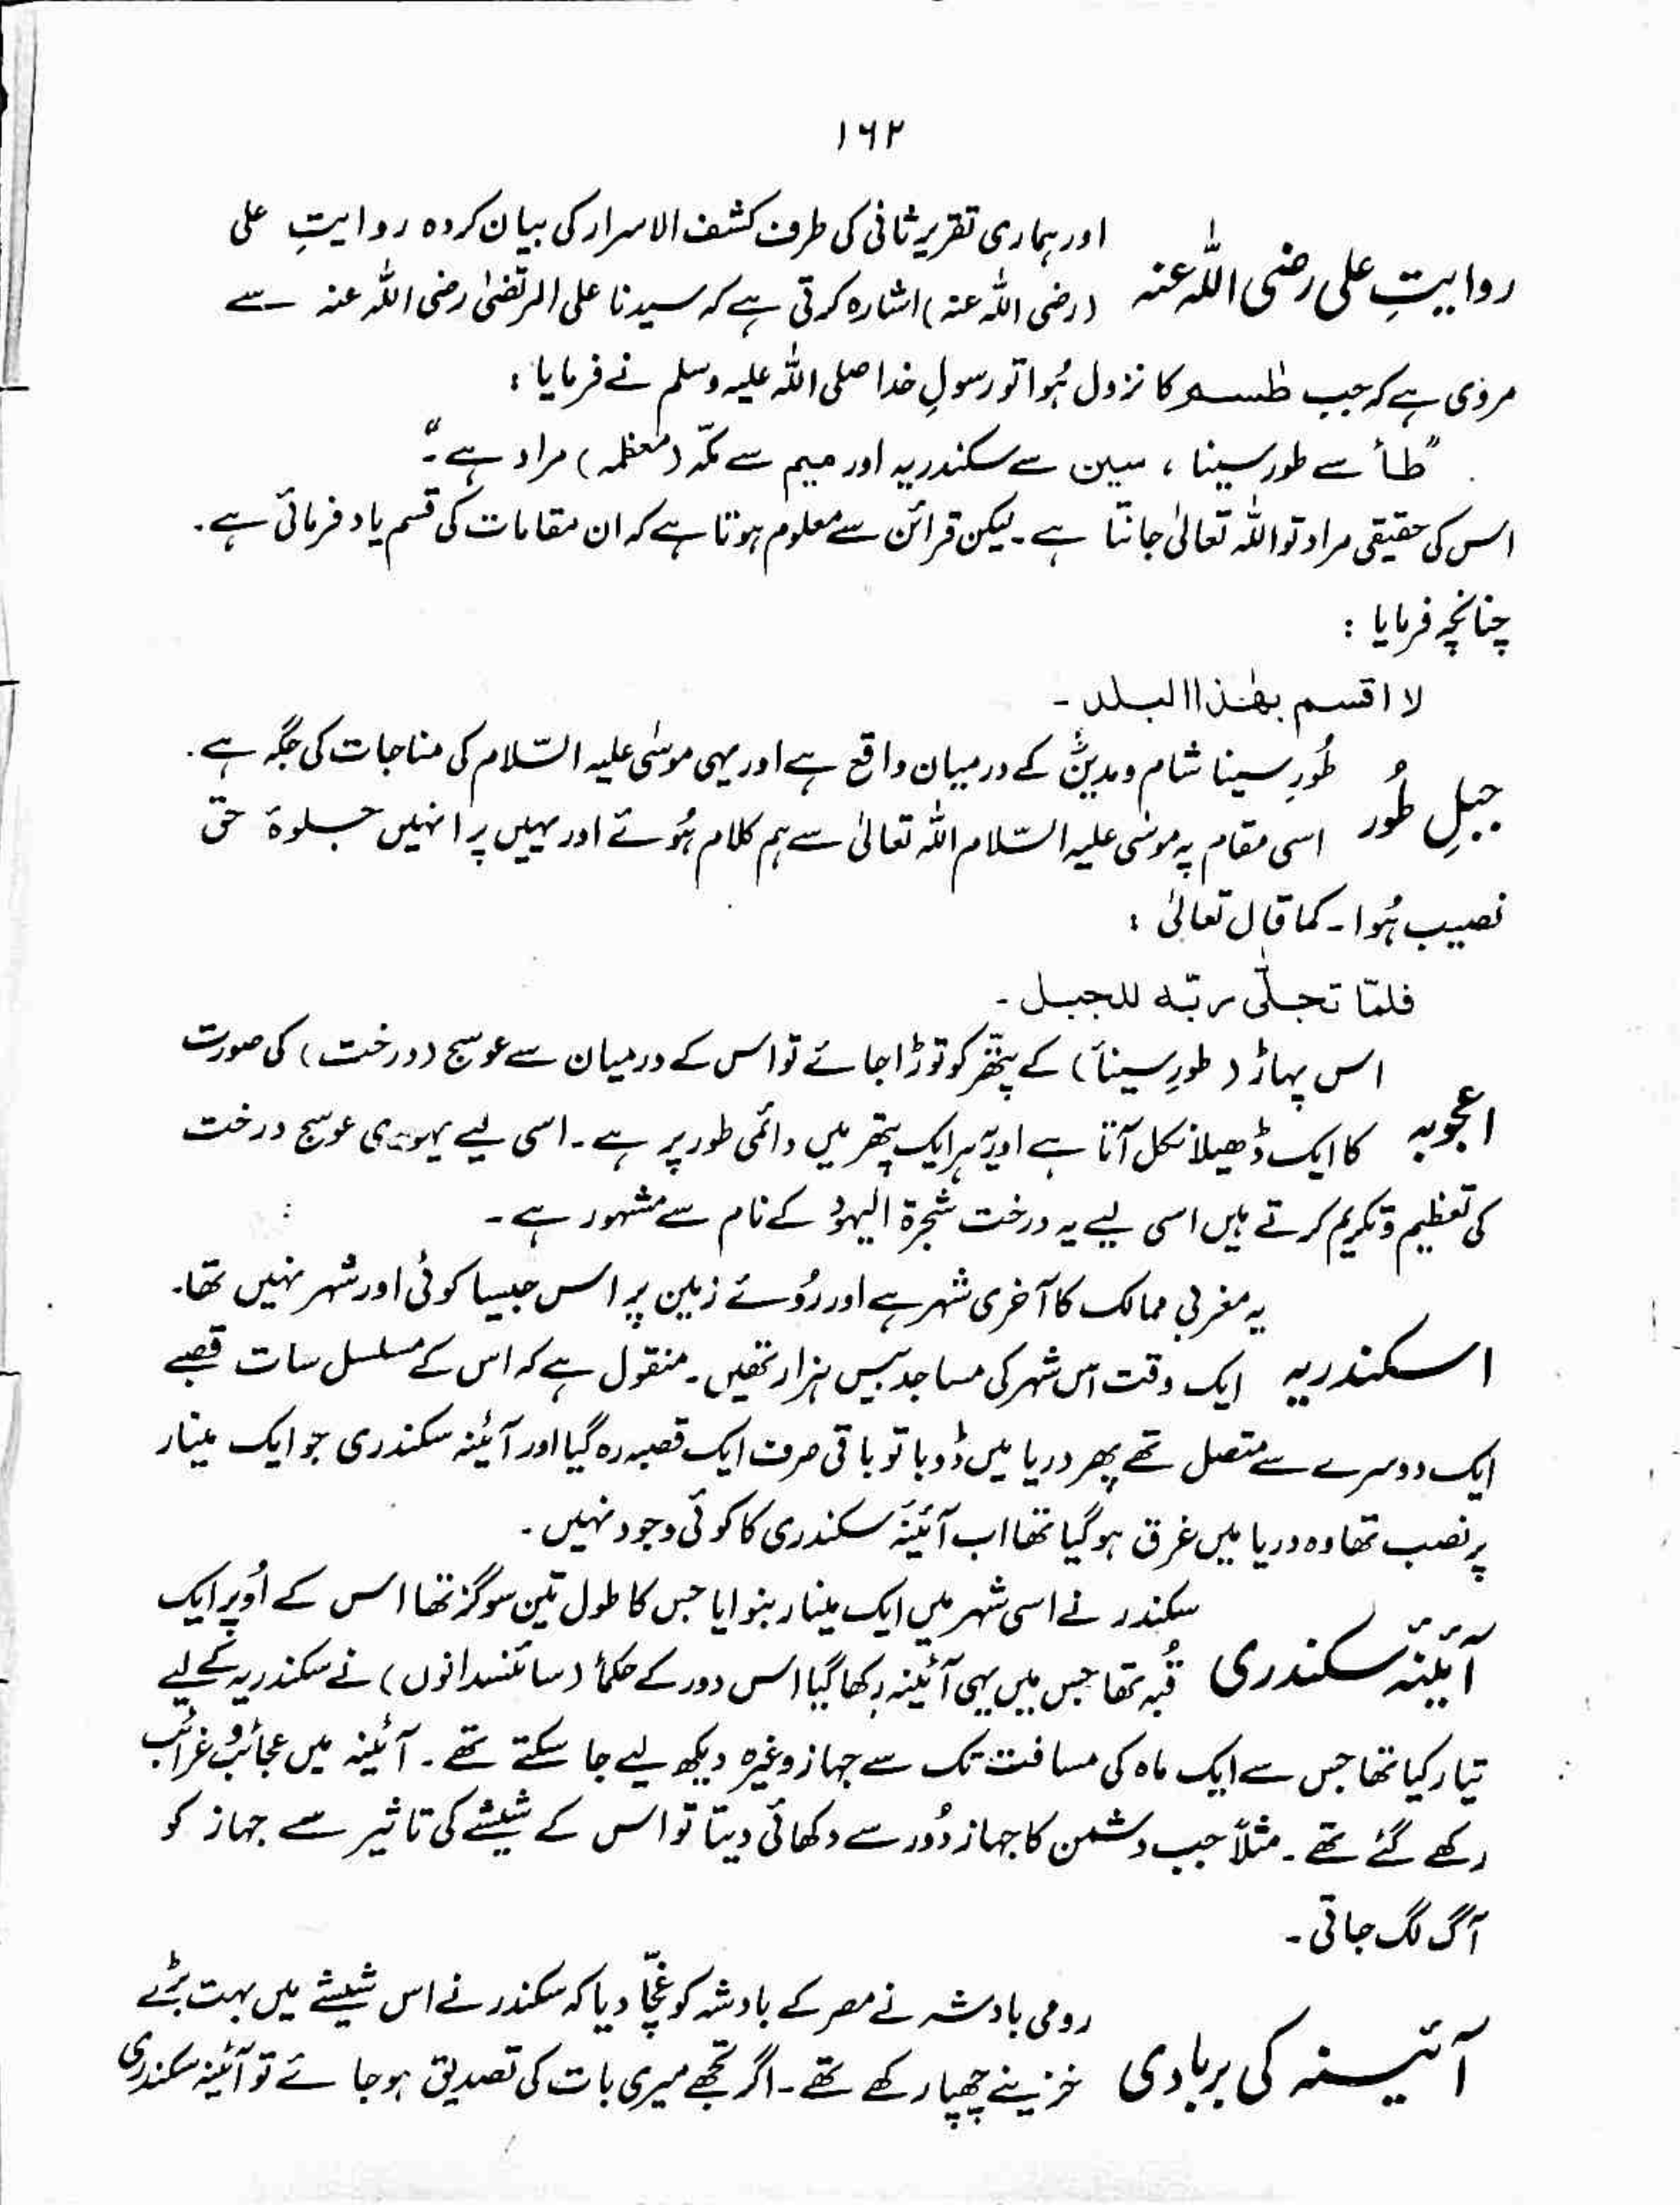 ۱۶۲
روایتِ علی رضی اللہ عنہ
اور ہماری تقریر ثانی کی طرف کشف الاسرار کی بیان کردہ روایتِ علی
(رضی اللہ عنہ) اشارہ کرتی ہے کہ سیدنا علی المرتضیٰ رضی اللہ عنہ سے
مروی ہے کہ جب طٰسم کا نزول ہُوا تو رسولِ خدا صلی اللہ علیہ وسلم نے فرمایا :
"طأ سے طور سینا ، سین سے سکندریہ اور میم سے مکّہ (معظمہ) مراد ہے۔"
اس کی حقیقی مراد تو اللہ تعالیٰ جانتا ہے۔ لیکن قرائن سے معلوم ہوتا ہے کہ ان مقامات کی قسم یاد فرمائی ہے۔
چنانچہ فرمایا :
لا اقسم بھٰذا البلد۔
جبلِ طُور
طُورِ سینا شام و مدین کے درمیان واقع ہے اور یہی موسٰی علیہ السّلام کی مناجات کی جگہ ہے۔
اسی مقام پہ موسٰی علیہ السّلام اللہ تعالیٰ سے ہم کلام ہُوئے اور یہیں پر انہیں جلوۂ حق
نصیب ہُوا۔ کما قال تعالیٰ :
فلمّا تجلّٰی ربّہ للجبل۔
اعجوبہ
اس پہاڑ (طورِ سینأ) کے پتھر کو توڑا جائے تو اس کے درمیان سے عوسج (درخت) کی صورت
کا ایک ڈھیلا نکل آتا ہے اور یہ ہر ایک پتھر میں دائمی طور پر ہے۔ اسی لیے یہودی عوسج درخت
کی تعظیم و تکریم کرتے ہیں اسی لیے یہ درخت شجرۃ الیہود کے نام سے مشہور ہے۔
اسکندریہ
یہ مغربی ممالک کا آخری شہر ہے اور رُوئے زمین پر اس جیسا کوئی اور شہر نہیں تھا۔
ایک وقت اس شہر کی مساجد بیس ہزار تھیں۔ منقول ہے کہ اس کے مسلسل سات قصبے
ایک دوسرے سے متصل تھے پھر دریا میں ڈوبا تو باقی صرف ایک قصبہ رہ گیا اور آئینہ سکندری جو ایک مینار
پر نصب تھا وہ دریا میں غرق ہوگیا تھا اب آئینۂ سکندری کا کوئی وجود نہیں۔
آئینۂ سکندری
سکندر نے اسی شہر میں ایک مینار بنوایا جس کا طول تین سو گز تھا اس کے اُوپر ایک
قُبہ تھا جس میں یہی آئینہ رکھا گیا اس دور کے حکمأ (سائنسدانوں) نے سکندریہ کے لیے
تیار کیا تھا جس سے ایک ماہ کی مسافت تک سے جہاز وغیرہ دیکھ لیے جا سکتے تھے۔ آئینہ میں عجائب و غرائب
رکھے گئے تھے۔ مثلاً جب دشمن کا جہاز دُور سے دکھائی دیتا تو اس کے شیشے کی تاثیر سے جہاز کو
آگ لگ جاتی۔
آئینہ کی بربادی
رومی بادشہ نے مصر کے بادشہ کو غچّا دیا کہ سکندر نے اس شیشے میں بہت بڑے
خزینے چھپا رکھے تھے۔ اگر تجھے میری بات کی تصدیق ہو جائے تو آئینہ سکندری